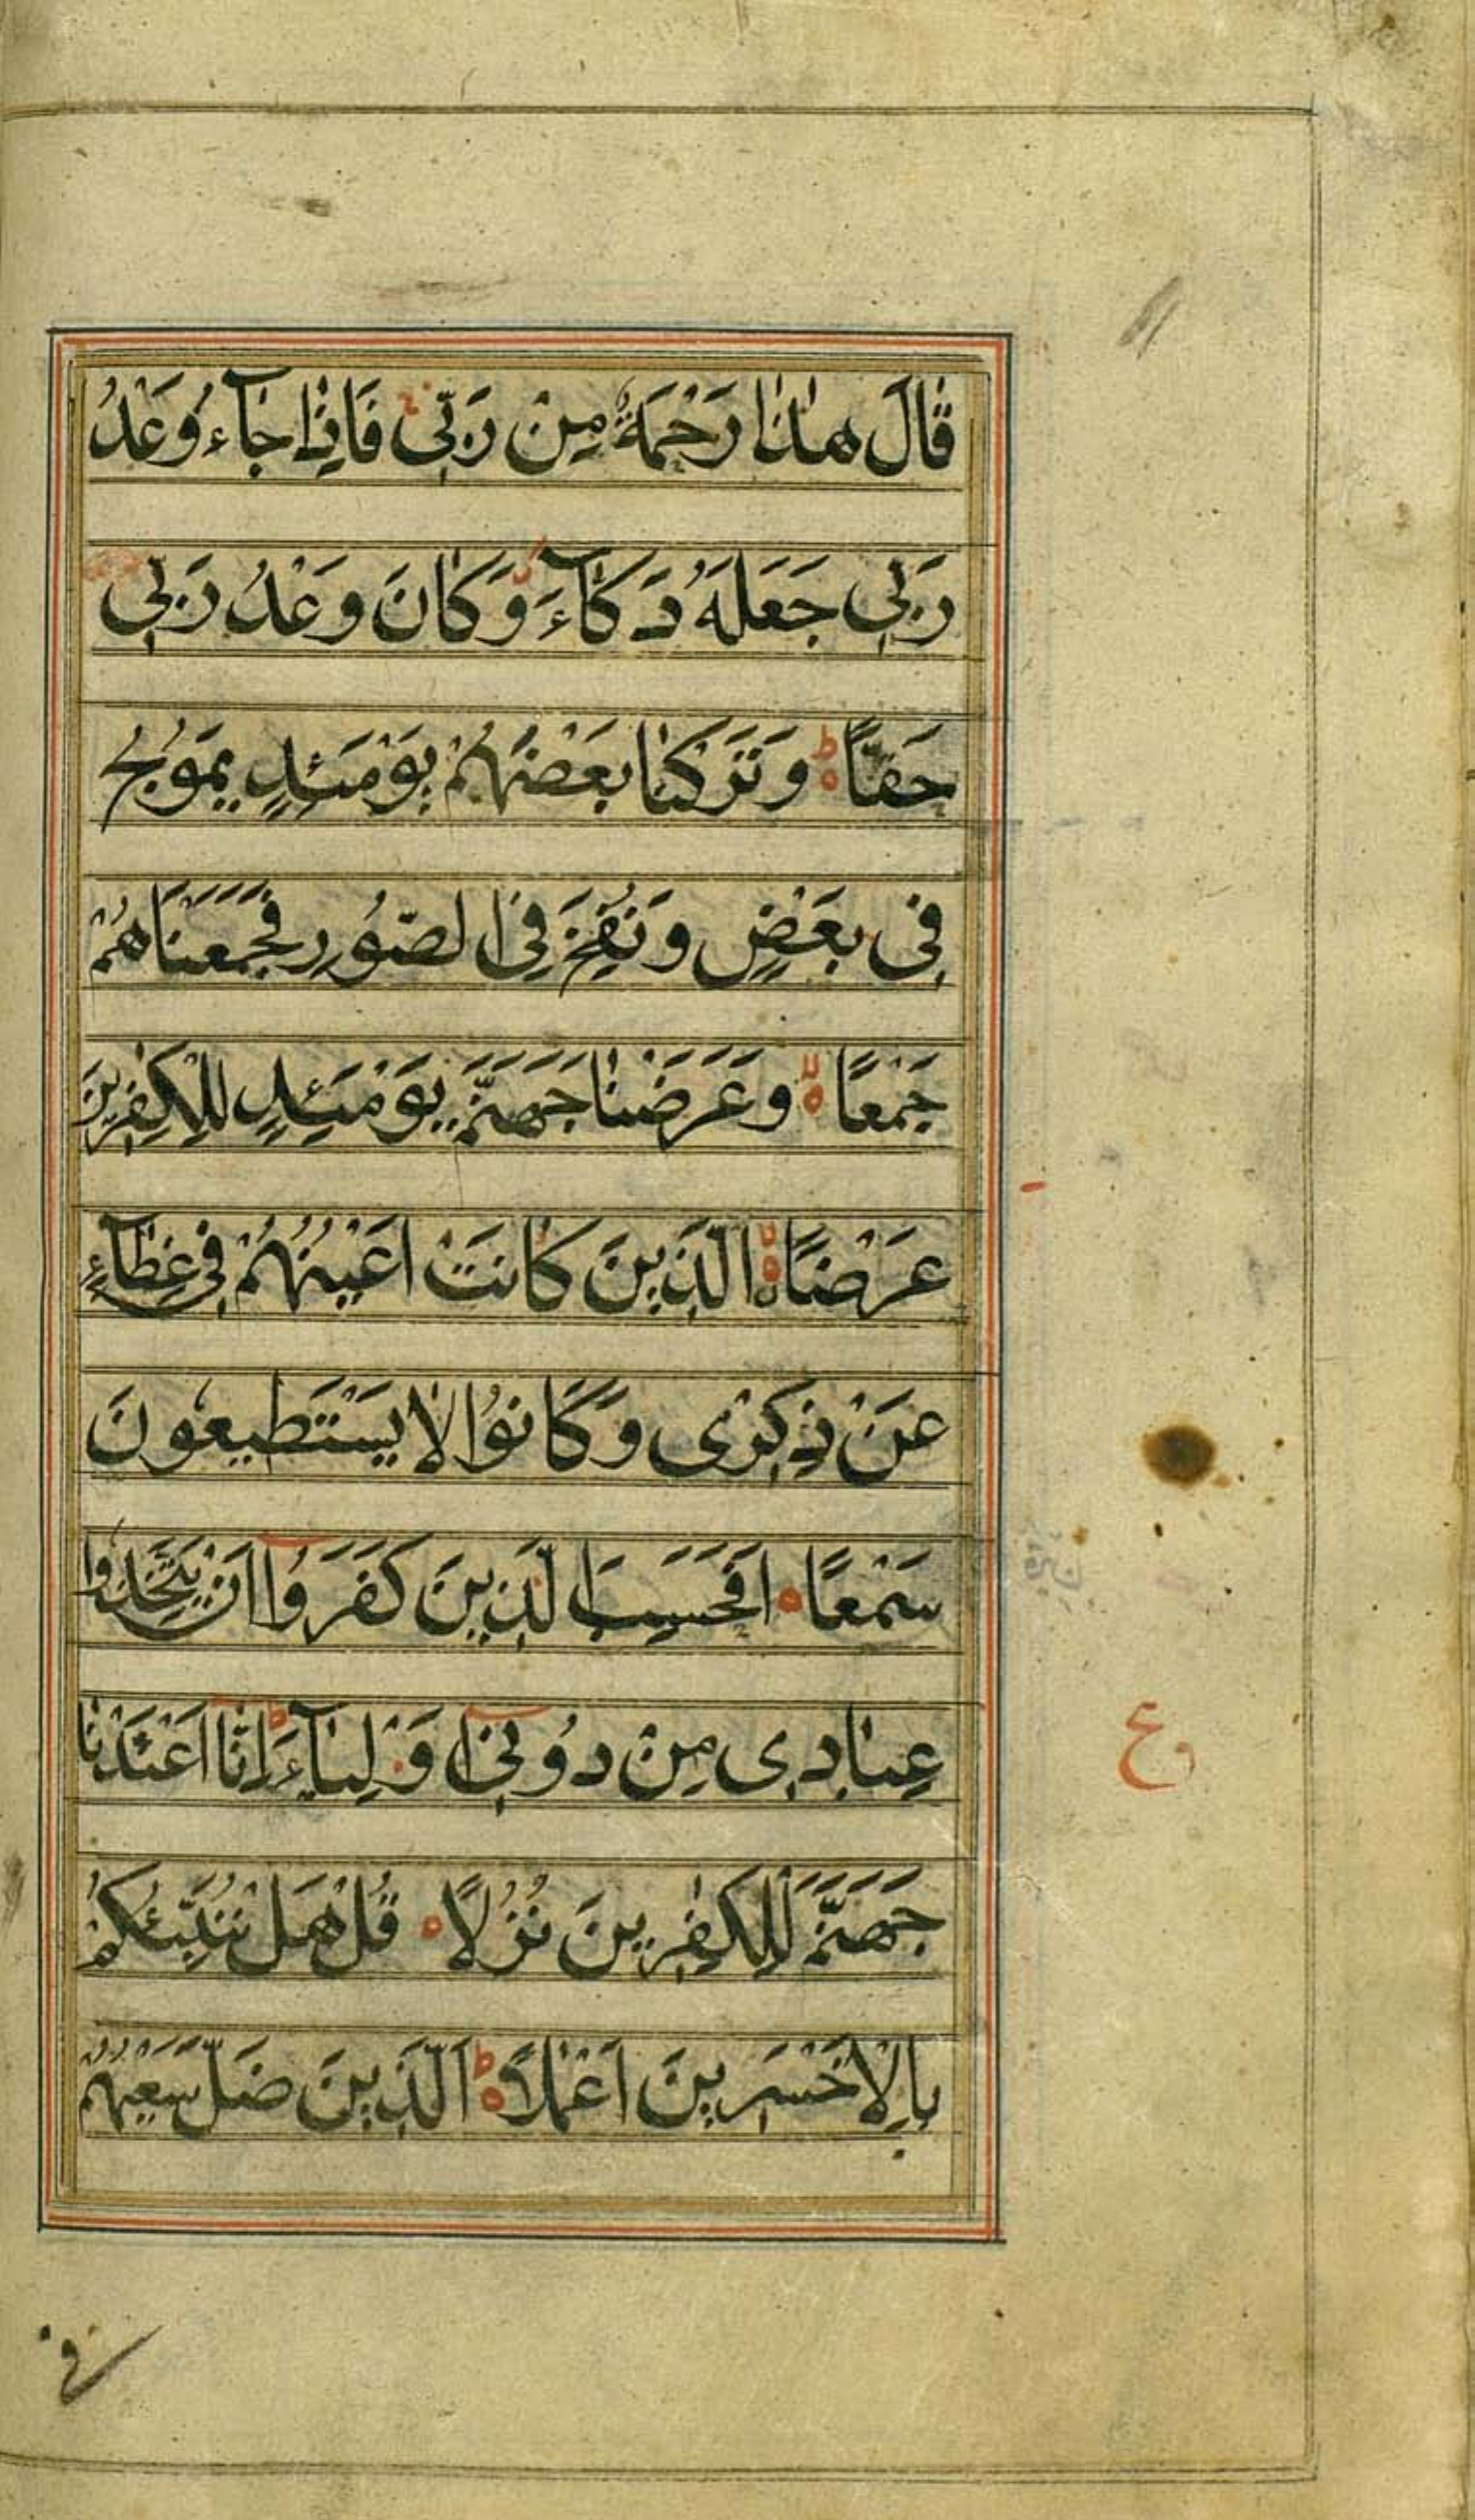 قَالَ هٰذَا رَحْمَةٌ مِنْ رَبِّی فَاِذَا جَآءَ وَعْدُ
رَبِّی جَعَلَهُ دَكَّآءَ وَكَانَ وَعْدُ رَبِّی
حَقًّا ۞ وَتَرَكْنَا بَعْضَهُمْ يَوْمَئِذٍ يَمُوجُ
فِی بَعْضٍ وَنُفِخَ فِی الصُّورِ فَجَمَعْنَاهُمْ
جَمْعًا ۞ وَعَرَضْنَا جَهَنَّمَ يَوْمَئِذٍ لِلْكٰفِرِينَ
عَرْضًا ۞ الَّذِينَ كَانَتْ اَعْيُنُهُمْ فِی غِطَآءٍ
عَنْ ذِكْرِی وَكَانُوْا لَا يَسْتَطِيعُونَ
سَمْعًا ۞ اَفَحَسِبَ الَّذِينَ كَفَرُوٓا اَنْ يَتَّخِذُوا
عِبَادِی مِنْ دُوْنِیٓ اَوْلِيَآءَ ط اِنَّآ اَعْتَدْنَا
جَهَنَّمَ لِلْكٰفِرِينَ نُزُلًا ۞ قُلْ هَلْ نُنَبِّئُكُمْ
بِالْاَخْسَرِينَ اَعْمَالًا ۞ اَلَّذِينَ ضَلَّ سَعْيُهُمْ
ع
فی